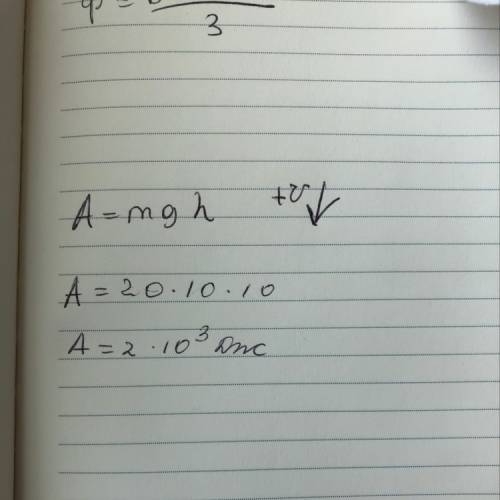 3
A = mgh +v ↓
A = 20 · 10 · 10
A = 2 · 10³ Дж